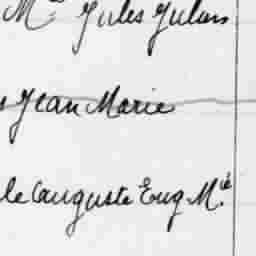 M. Jules Julien
Jean Marie
le Cauguste Eug M.ie